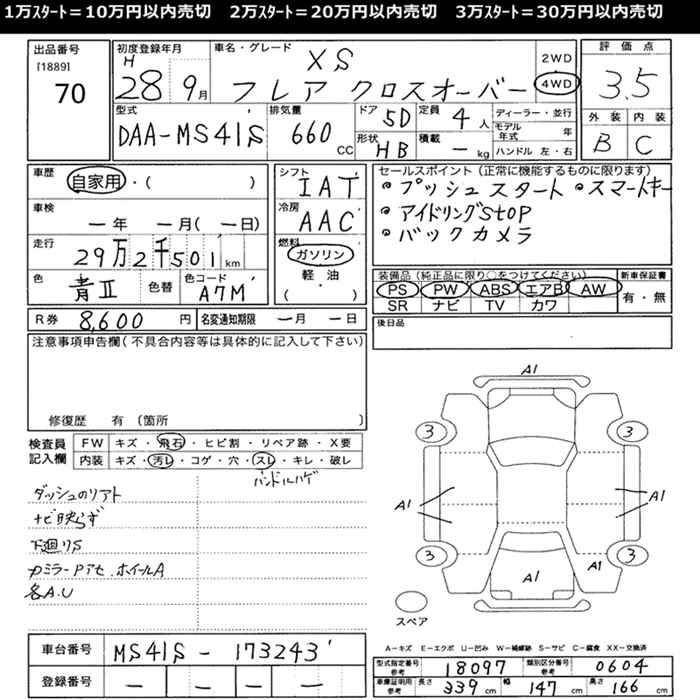 1万ｽﾀｰﾄ＝10万円以内売切　2万ｽﾀｰﾄ＝20万円以内売切　3万ｽﾀｰﾄ＝30万円以内売切
出品番号
[1889]
70
初度登録年月
H
28年9月
車名・グレード
XS
フレア クロスオーバー
2WD
4WD
評価点
3.5
外装 内装
B C
型式
DAA-MS41S
排気量
660
CC
ドア 5D
定員 4人
形状 HB
積載 ー kg
ディーラー・並行
モデル年式 年
ハンドル 左・右
車歴
自家用・( )
車検
ー年 ー月( ー日)
走行
29万2千501km
色
青Ⅱ
色替
色コード
A7M
シフト
IAT
冷房
AAC
燃料
ガソリン
軽・油
( )
セールスポイント (正常に機能するものに限ります)
・プッシュスタート ・スマートキー
・アイドリングStOP
・バックカメラ
装備品(純正品に限り○をつけてください)
PS PW ABS エアB AW
SR ナビ TV カワ
新車保証書
有・無
後日品
R券 8,600円
名変通知期限 ー月 ー日
注意事項申告欄(不具合内容等は具体的に記入して下さい)
修復歴 有 (箇所
検査員記入欄
FW キズ・飛石・ヒビ割・リペア跡・X要
内装 キズ・汚レ・コゲ・穴・スレ・キレ・破レ
ハンドルハゲ
ダッシュのリアト
ナビ映らず
下廻りS
カミラーPアセ.ホイールA
各A.U
A1
3 3
A1 A1
3 3
A1 A1
スペア
A−キズ E−エクボ U−凹み W−補修跡 S−サビ C−腐食 XX−交換済
車台番号
MS41S - 173243
登録番号
ー ー ー ー
型式指定番号 参考 18097
類別区分番号 参考 0604
車庫証明用 参考
長さ 339cm 幅 147cm 高さ 166cm